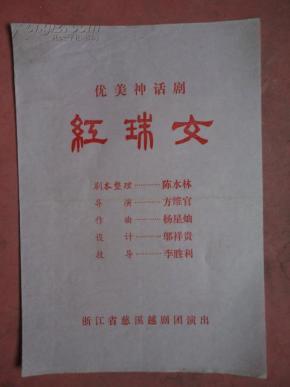 优美神话剧
紅珠女
剧本整理………陈水林
导演………方维官
作曲………杨星灿
设计………邬祥贵
技导………李胜利
浙江省慈溪越剧团演出